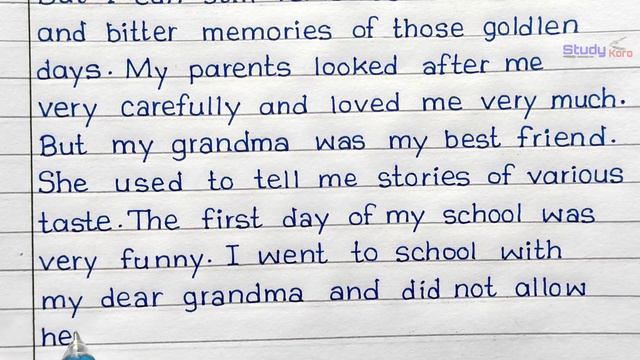 and bitter memories of those goldlen
Study Koro
days. My parents looked after me
very carefully and loved me very much.
But my grandma was my best friend.
She used to tell me stories of various
taste. The first day of my school was
very funny. I went to school with
my dear grandma and did not allow
he